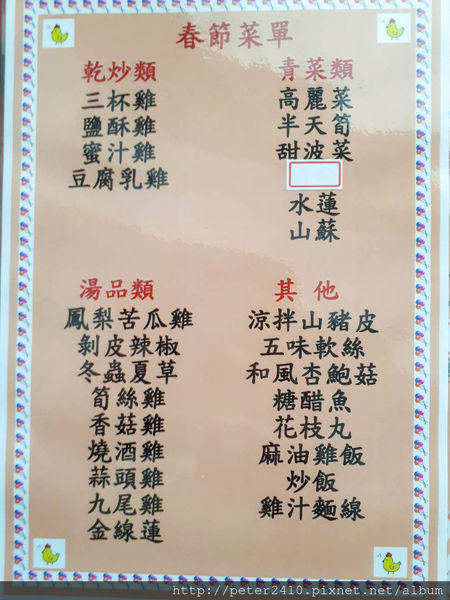 春節菜單
乾炒類
三杯雞
鹽酥雞
蜜汁雞
豆腐乳雞
青菜類
高麗菜
半天筍
甜波菜
水蓮
山蘇
湯品類
鳳梨苦瓜雞
剝皮辣椒
冬蟲夏草
筍絲雞
香菇雞
燒酒雞
蒜頭雞
九尾雞
金線蓮
其他
涼拌山豬皮
五味軟絲
和風杏鮑菇
糖醋魚
花枝丸
麻油雞飯
炒飯
雞汁麵線
http://peter2410.pixnet.net/album